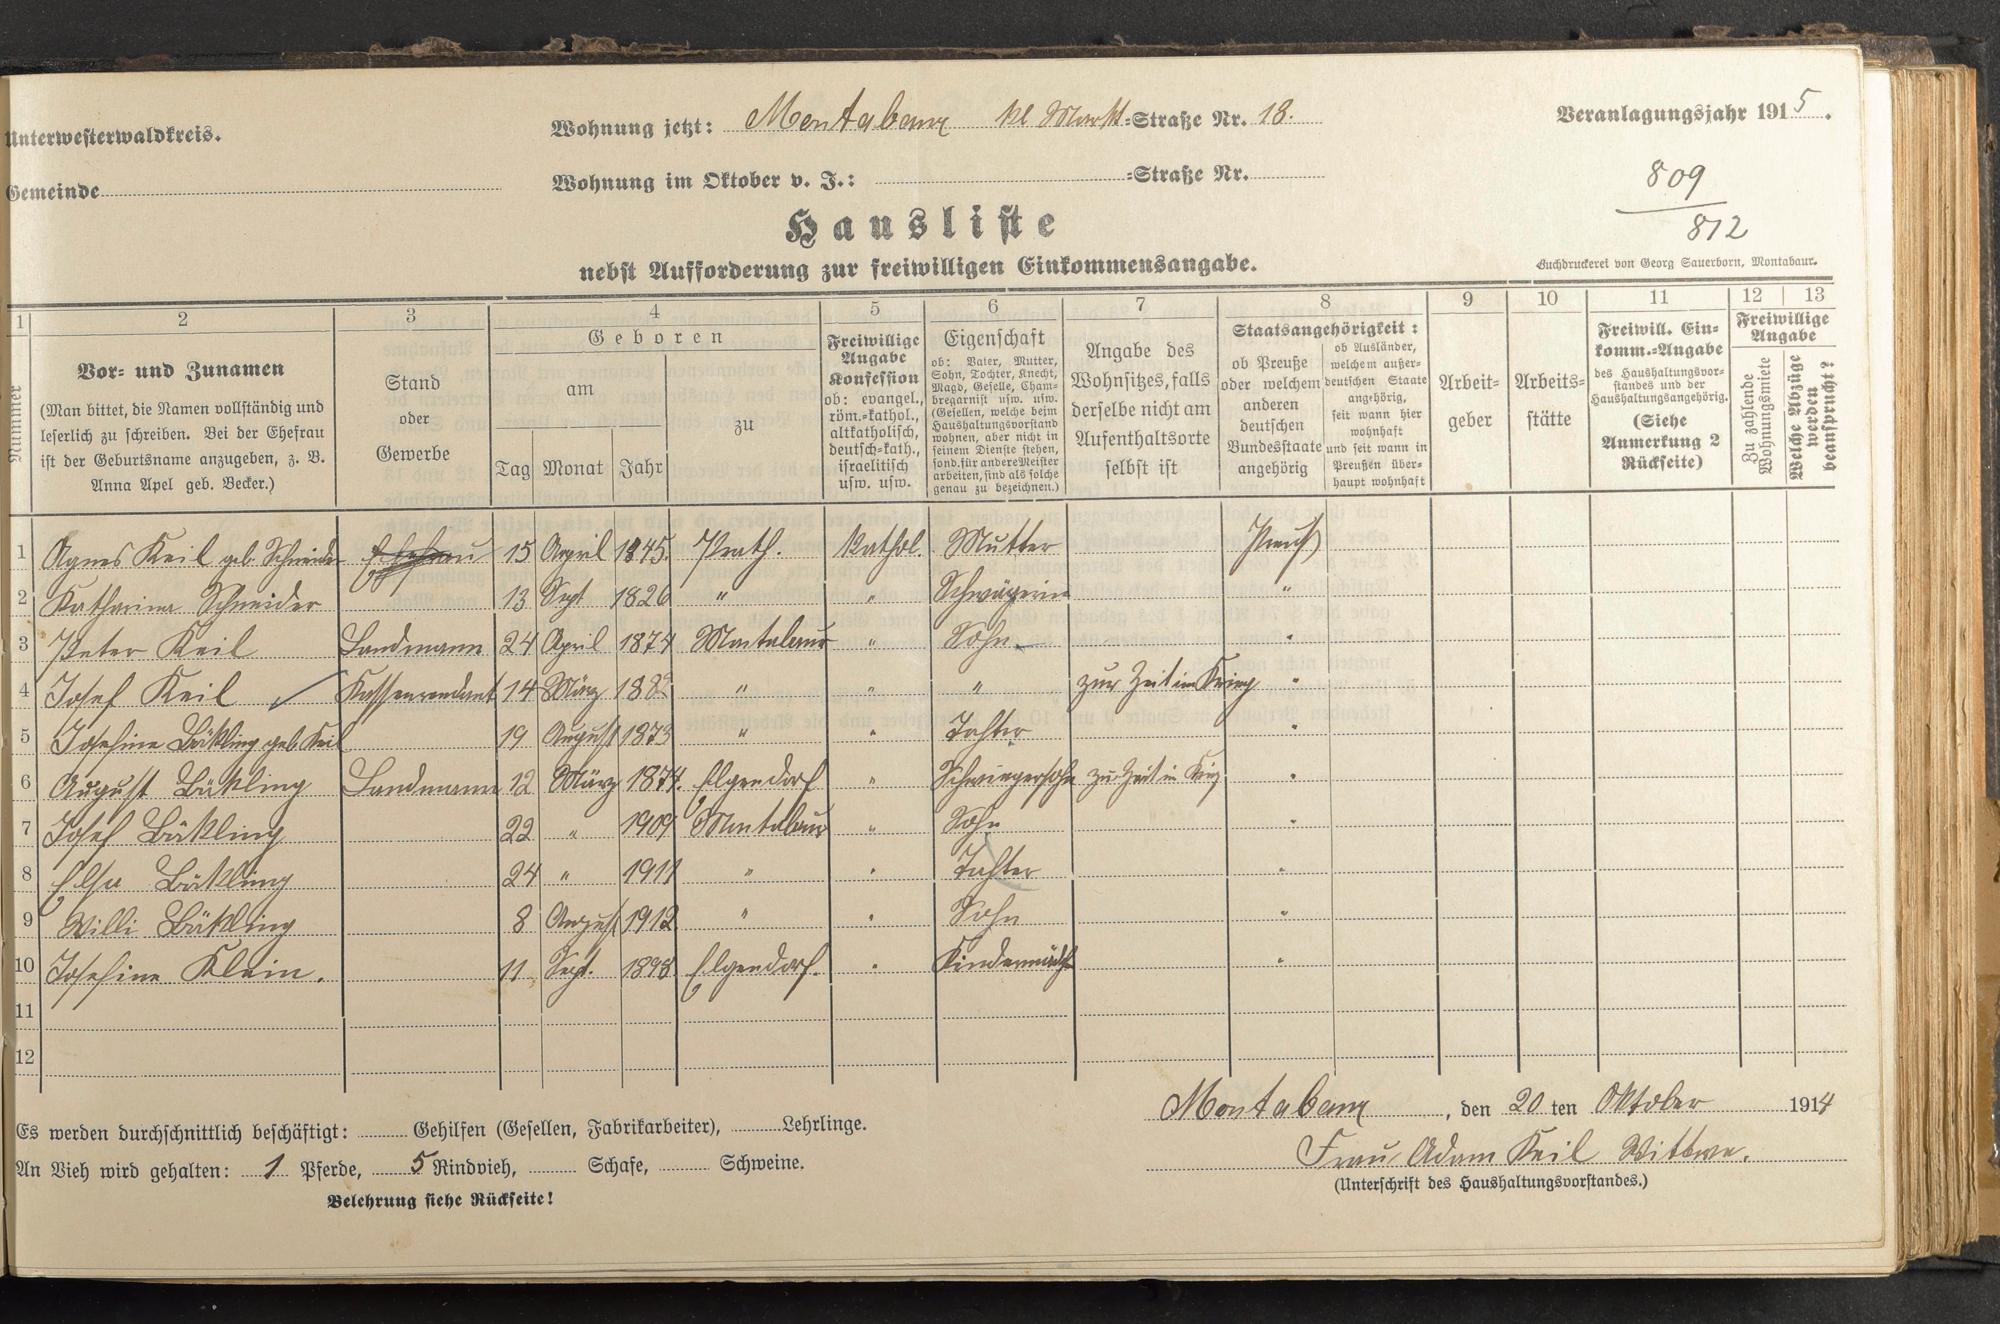 Unterwesterwaldkreis.
Wohnung jetzt: Montabaur kl Markt-Straße Nr. 18.
Veranlagungsjahr 1915.
Gemeinde
Wohnung im Oktober v. J.: -Straße Nr.
809
812
Hausliste
nebst Aufforderung zur freiwilligen Einkommensangabe.
Buchdruckerei von Georg Sauerborn, Montabaur.
1 2 3 4 5 6 7 8 9 10 11 12 13
Nummer
Vor- und Zunamen
(Man bittet, die Namen vollständig und
leserlich zu schreiben. Bei der Ehefrau
ist der Geburtsname anzugeben, z. B.
Anna Apel geb. Becker.)
Stand
oder
Gewerbe
Geboren
am
Tag Monat Jahr
zu
Freiwillige
Angabe
Konfession
ob: evangel.,
röm.-kathol.,
altkatholisch,
deutsch-kath.,
israelitisch
usw. usw.
Eigenschaft
ob: Vater, Mutter,
Sohn, Tochter, Knecht,
Magd, Geselle, Cham-
bregarnist usw. usw.
(Gesellen, welche beim
Haushaltungsvorstand
wohnen, aber nicht in
seinem Dienste stehen,
sond. für andere Meister
arbeiten, sind als solche
genau zu bezeichnen.)
Angabe des
Wohnsitzes, falls
derselbe nicht am
Aufenthaltsorte
selbst ist
Staatsangehörigkeit:
ob Preuße
oder welchem
anderen
deutschen
Bundesstaate
angehörig
ob Ausländer,
welchem außer-
deutschen Staate
angehörig,
seit wann hier
wohnhaft
und seit wann in
Preußen über-
haupt wohnhaft
Arbeit-
geber
Arbeits-
stätte
Freiwill. Ein-
komm.-Angabe
des Haushaltungsvor-
standes und der
Haushaltungsangehörig.
(Siehe
Anmerkung 2
Rückseite)
Freiwillige
Angabe
Zu zahlende
Wohnungsmiete
Welche Abzüge
werden
gewünscht?
1 Agnes Keil geb. Schneider Ehefrau 15 April 1845. Wirth. Kathol. Mutter Preuß
2 Katharina Schneider 13 Sept 1826 " " Schwägerin "
3 Peter Keil Landmann 24 April 1874 Montabaur " Sohn "
4 Josef Keil Kassenrendant 14 März " " " zur Zeit im Krieg "
5 Josefine Bäkling geb. Keil 19 August 1873 " " Tochter "
6 August Bäkling Landmann 12 März 1874. Elgendorf " Schwiegersohn zu Zeit im "
7 Josef Bäkling 22 " 1909 Montabaur " Sohn "
8 Elsa Bäkling 24 " 1911 " " Tochter "
9 Willi Bäkling 8 August 1912 " " Sohn "
10 Josefine Klein. 11 Sept. 1898 Elgendorf. " "
11
12
Montabaur, den 20 ten Oktober 1914
Es werden durchschnittlich beschäftigt: Gehilfen (Gesellen, Fabrikarbeiter), Lehrlinge.
Frau Adam Keil Wittwe.
An Vieh wird gehalten: 1 Pferde, 5 Rindvieh, Schafe, Schweine.
(Unterschrift des Haushaltungsvorstandes.)
Belehrung siehe Rückseite!